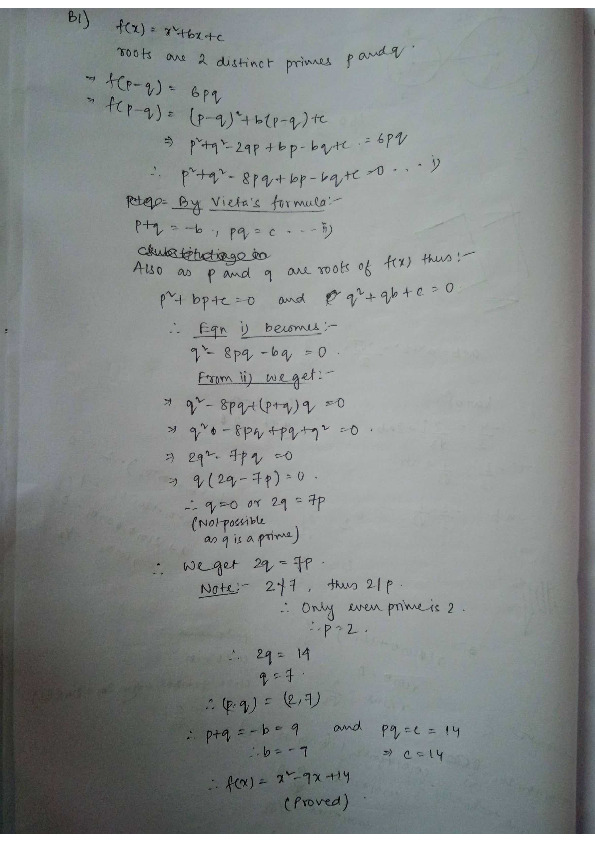 B1)
f(x) = x²+bx+c
roots are 2 distinct primes p and q.
⇒ f(p-q) = 6pq
⇒ f(p-q) = (p-q)²+b(p-q)+c
⇒ p²+q²-2qp+bp-bq+c = 6pq
∴ p²+q²-8pq+bp-bq+c=0 ... i)
By Vieta's formula:-
p+q = -b , pq = c ... ii)
Also as p and q are roots of f(x) thus:-
p²+bp+c=0 and q²+qb+c=0.
∴ Eqn i) becomes:-
q²-8pq-bq = 0.
From ii) we get:-
⇒ q²-8pq+(p+q)q =0
⇒ q²-8pq+pq+q² =0.
⇒ 2q²-7pq =0
⇒ q(2q-7p)=0.
∴ q=0 or 2q = 7p
(Not possible
as q is a prime)
∴ We get 2q = 7p.
Note:- 2∤7, thus 2|p.
∴ Only even prime is 2.
∴ p=2.
∴ 2q = 14
q=7.
∴ (p,q) = (2,7)
∴ p+q = -b = 9 and pq=c = 14
∴ b = -7 ⇒ c=14
∴ f(x) = x²-9x+14
(Proved).